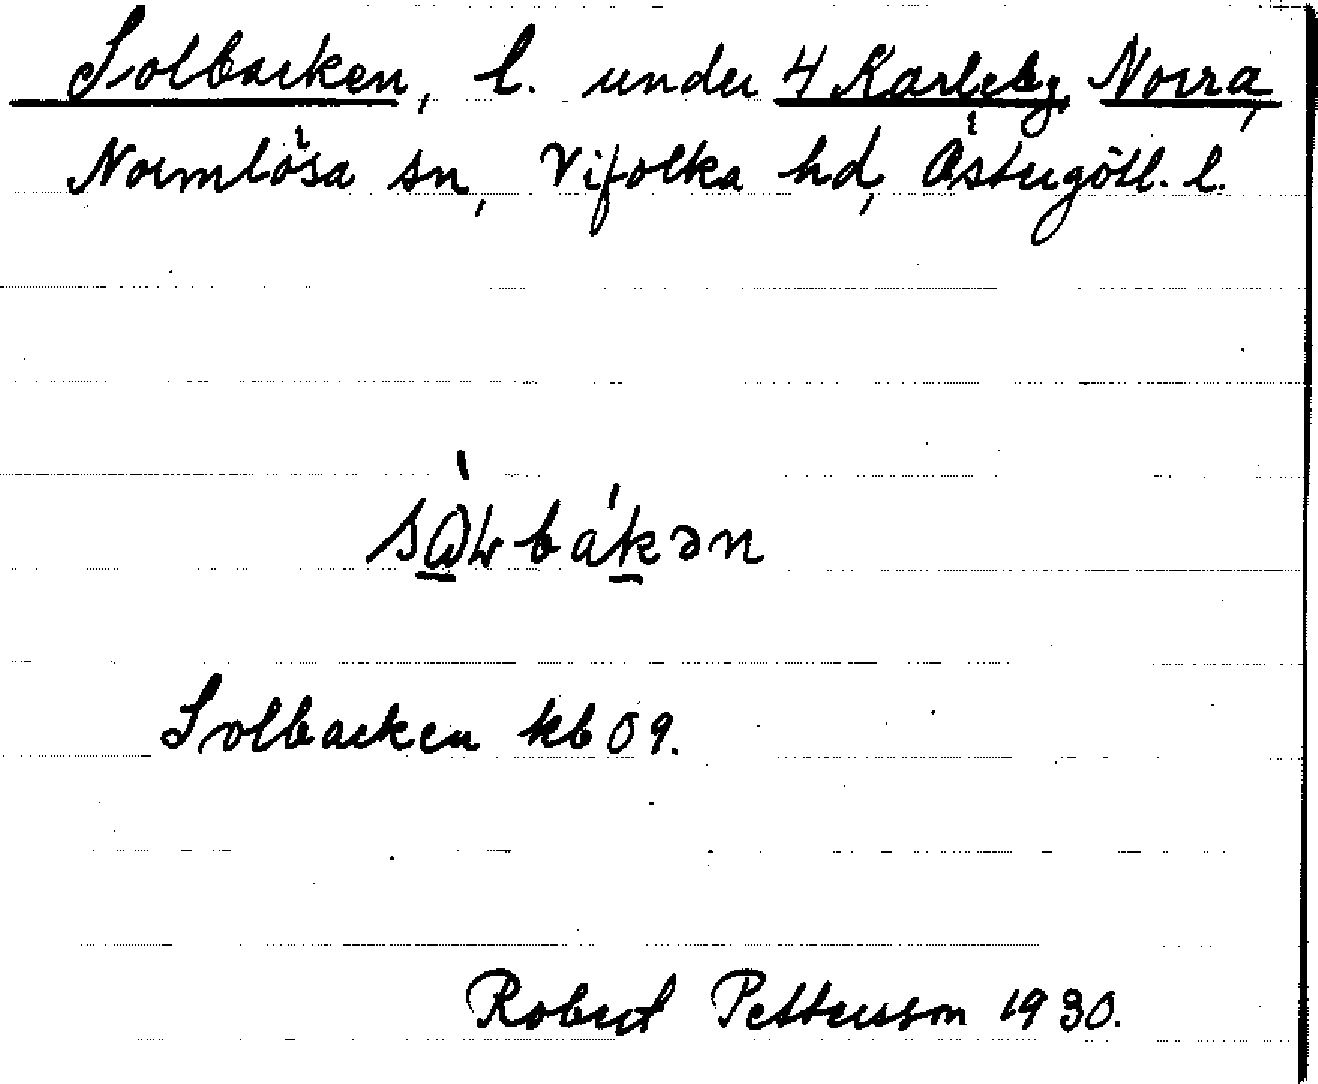 Solbacken, l. under 4 Karleby, Norra,
Normlösa sn, Vifolka hd, Östergötl. l.
Solbacken kb 09.
Robert Pettersson 1930.